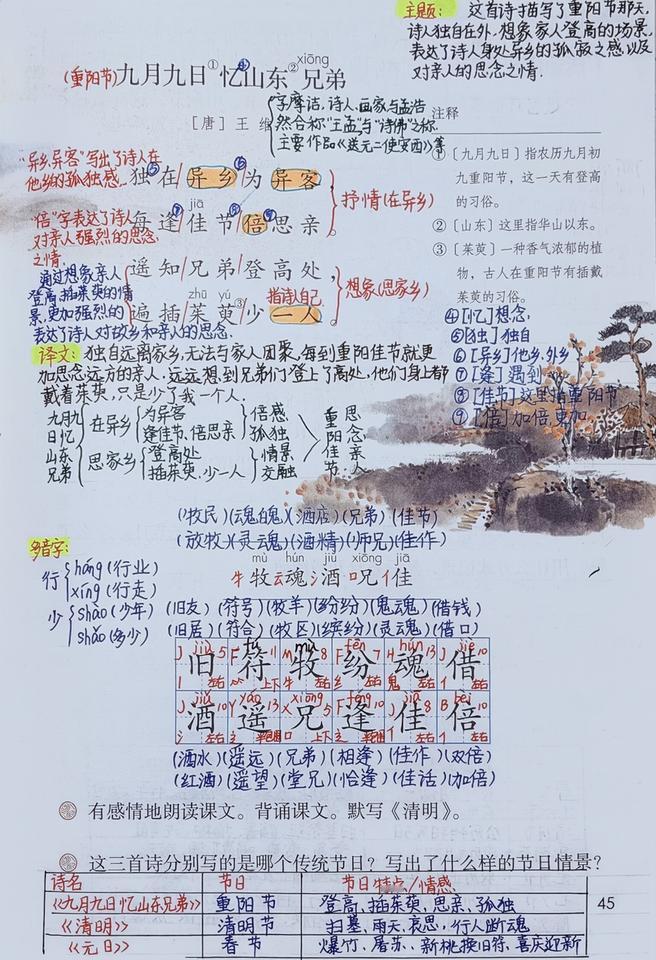 主题：这首诗描写了重阳节那天,
诗人独自在外,想象家人登高的场景,
表达了诗人身处异乡的孤寂之感以及
对亲人的思念之情.
xiōng
(重阳节)九月九日①忆④山东②兄弟
[唐] 王 维
字摩诘,诗人、画家与孟浩
然合称"王孟"与"诗佛"之称.
主要作品《送元二使安西》等
注释
① 〔九月九日〕指农历九月初
九重阳节，这一天有登高
的习俗。
② 〔山东〕这里指华山以东。
③ 〔茱萸〕一种香气浓郁的植
物，古人在重阳节有插戴
茱萸的习俗。
④[忆]想念.
⑤[独]独自
⑥[异乡]他乡、外乡
⑦[逢]遇到
⑧[佳节]这里指重阳节
⑨[倍]加倍、更加
"异乡、异客"写出了诗人在
他乡的孤独感.
独⑤在/异乡⑥/为 异客
jiā
每逢⑦/佳节⑧/倍⑨思亲
抒情(在异乡)
"倍"字表达了诗人
对亲人强烈的思念
之情.
遥知/兄弟/登高处,
zhū yú
遍插/茱萸③/少 一人
指诗人自己.
想象(思家乡)
通过想象亲人
登高、插茱萸的情
景,更加强烈的
表达了诗人对故乡和亲人的思念.
译文：独自远离家乡,无法与家人团聚,每到重阳佳节就更
加思念远方的亲人.远远想到兄弟们登上了高处,他们身上都
戴着茱萸,只是少了我一个人.
九月九
日忆
山东
兄弟
在异乡 为异客 逢佳节、倍思亲 倍感 孤独
思家乡 登高处 插茱萸、少一人 情景 交融
重阳佳节
思念亲人
(牧民)(魂魄)(酒店)(兄弟)(佳节)
(放牧)(灵魂)(酒精)(师兄)(佳作)
mù hún jiǔ xiōng jiā
牧魂酒兄佳
多音字：
行 háng(行业)
xíng(行走)
少 shào(少年)
shǎo(多少)
(旧友)(符号)(牧羊)(纷纷)(鬼魂)(借钱)
(旧居)(符合)(牧区)(缤纷)(灵魂)(借口)
jiù fú mù fēn hún jiè
旧 符 牧 纷 魂 借
jiǔ yáo xiōng féng jiā bèi
酒 遥 兄 逢 佳 倍
(酒水)(遥远)(兄弟)(相逢)(佳作)(双倍)
(红酒)(遥望)(堂兄)(恰逢)(佳话)(加倍)
有感情地朗读课文。背诵课文。默写《清明》。
这三首诗分别写的是哪个传统节日？写出了什么样的节日情景？
诗名 节日 节日特点/情感
《九月九日忆山东兄弟》 重阳节 登高、插茱萸、思亲、孤独
《清明》 清明节 扫墓、雨天、哀思、行人断魂
《元日》 春节 爆竹、屠苏、新桃换旧符、喜庆迎新
45